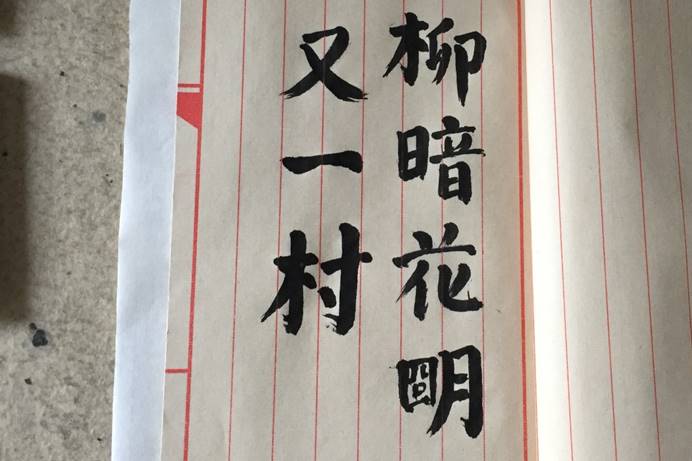 柳暗花明
又一村